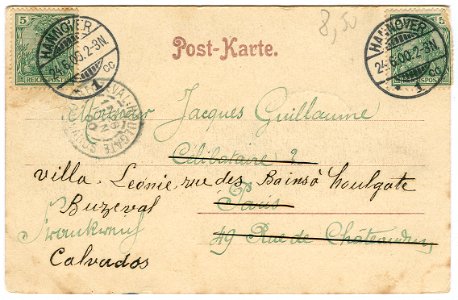 8,50
5
REICHSPOST
HANNOVER
24.6.00.2-3N
1 cc
HANNOVER
24.6.00.2-3N
1
Post-Karte.
Monsieur Jacques Guillaume
Célibataire
villa Léonie, rue des Bains à houlgate
Buzeval Paris
Frankreich 49 Rue de Châteaudun
Calvados